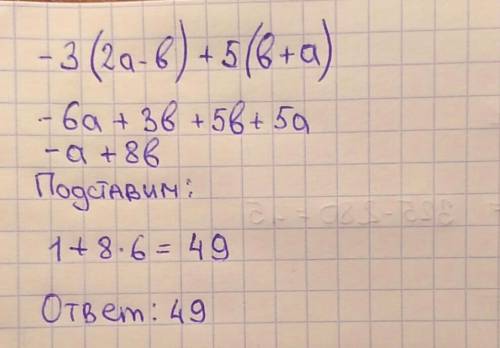 -3(2а-в)+5(в+а)
-6а+3в+5в+5а
-а+8в
Подставим:
1+8·6=49
Ответ: 49